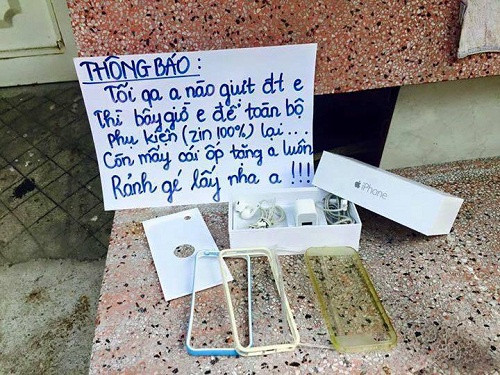 THÔNG BÁO :
Tối qa a nào giựt đt e
Thì bây giờ e để toàn bộ
Phụ kiện (zin 100%) lại ...
Còn mấy cái ốp tặng a luôn
Rảnh gé lấy nha a !!!
iPhone